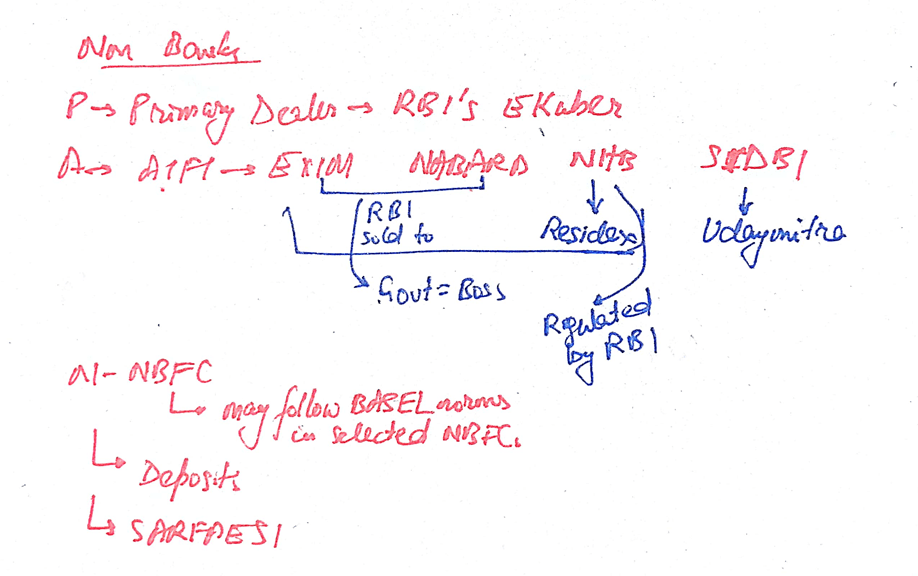 Non Banks
P → Primary Dealer → RBI's EKuber
A → AIFI → EXIM NABARD NHB SIDBI
RBI sold to
Residex
Udayamitra
Govt = Boss
Regulated by RBI
N - NBFC
may follow BASEL norms
in selected NBFC.
Deposits
SARFAESI